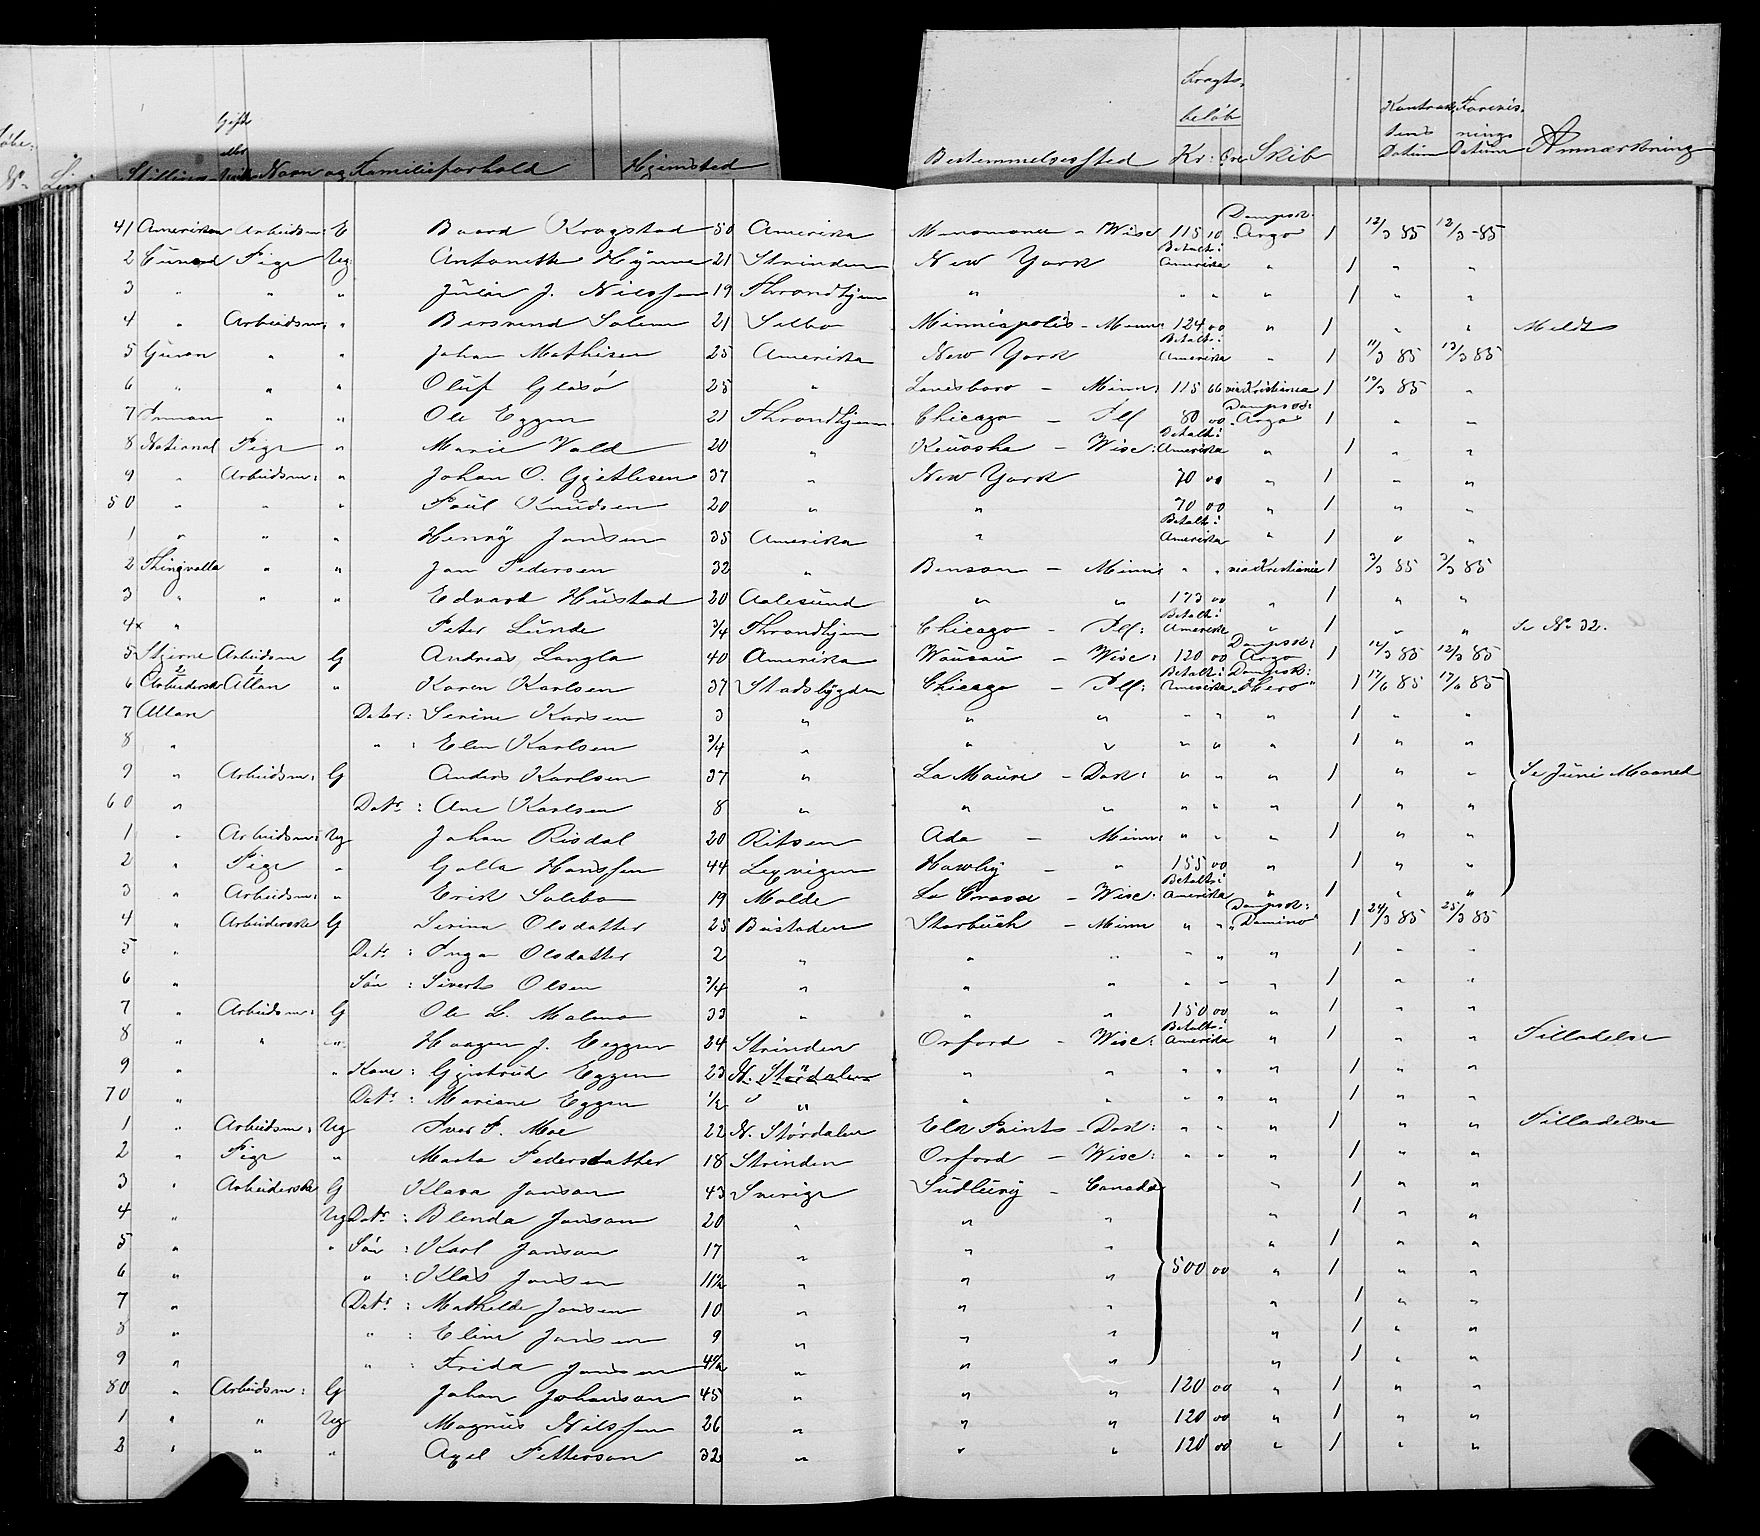 Stilling Gift eller Navn og Familieforhold Hjemsted
Bestemmelsessted Fragtbeløb Kr: Øre Skib Datum Datum Anmærkning
41 Arbeidsm: 50 Amerika - Wisc 115 10 Dampsk: Argo 1 12/3 85 12/3 - 85
2 Cunard Pige Ug: Antonette 21 Strinden New York Betalt i Amerika " 1 " "
3 " " " Julie J. Nilssen 19 Throndhjem " " " " 1 " "
4 " Arbeidsm: " Salem 21 Selbo Minneapolis - Minn: 124 00 " 1 " " Meldt
5 Guion " " Johan Mathisen 25 Amerika New York Betalt i Amerika " 1 11/3 85 13/3 85
6 " " " Oluf Glasø 25 " Lanesboro - Minn: 115 66 via Kristiania 1 "
7 Inman " " Ole Eggen 21 Throndhjem Chicago - Ill 80 00 Dampsk: "Argo" 1 " "
8 National Pige " Marie Vold 20 " Kenosha - Wisc: Betalt i Amerika " 1 " "
9 " Arbeidsm: " Johan O. Gjetlesen 37 " New York 70 00 " 1 " "
50 " " " Paul Knudsen 20 " " 70 00 " 1 " "
1 " " " Henry Jansen 35 Amerika " Betalt i Amerika " 1 " "
2 Thingvalla " " Jan Pedersen 32 " Benson - Minn: " " via Kristiania 1 3/3 85 3/3 85
3 " " " Edvard Hustad 20 Aalesund " " 173 00 " 1 " "
4x " Peter Lunde 3/4 Throndhjem Chicago - Ill: Betalt i Amerika " 1 " " Se No 32.
5 Stjerne Arbeidsm G Andreas Langla 40 Amerika Wausau - Wisc: 120 00 Dampsk: Argo 1 12/3 85 12/3 85
6 Arbeiderske Allan " Karen Karlsen 37 Stadsbygden Chicago - Ill: Betalt i Amerika Dampsk: "Hero" 1 17/6 85 17/6 85
7 Allan Dater: Serine Karlsen 3 " " " " " " 1 " "
8 " " : Elen Karlsen 3/4 " " " " " " 1 " "
9 " Arbeidsm: G Anders Karlsen 37 " La Moure - Dak: " " " 1 " " Se Juni Maaned
60 " Datr : Ane Karlsen 8 " " " " " " 1 " "
1 " Arbeidsm: Ug Johan Risdal 20 Ritsen Ada - Minn: " " " 1 " "
2 " Pige " Golla Hanssen 44 Lexvigen Hawley - " 155 00 " 1 " "
3 " Arbeidsm: " Erik Solebo 19 Molde La Crosse - Wisc: Betalt i Amerika " 1 " "
4 " Arbeiderske G Serina Olsdatter 25 Budstaden Starbuck - Minn " " Dampsk: "Domino" 1 24/3 85 25/3 85
5 " Datr : Inga Olsdatter 2 " " " " " " 1 " "
6 " Søn : Siverts Olsen 3/4 " " " " " " 1 " "
7 " Arbeidsm: G Ole L. Malmo 33 " " " 150 00 " 1 " "
8 " " " Haagen J. Eggen 24 Strinden Orford - Wisc: Betalt i Amerika " 1 " " Tilladelse
9 " " Kone: Gjertrud Eggen 23 N. Størdalen " " " " " 1 " "
70 " Datr : Mariane Eggen 1/2 " " " " " " " 1 " "
1 " Arbeidsm: Ug Iver P. Moe 22 N. Størdalen Elk Point - Dak: " " " 1 " " Tilladelse
2 " Pige " Marta Pedersdatter 18 Strinden Orford - Wisc: " " " 1 " "
3 " Arbeiderske G Klara Janson 43 Sverige Sudbury - Canada " 1 " "
4 " Ug Datr : Blenda Janson 20 " " " " 1 " "
5 " " Søn : Karl Janson 17 " " " " 1 " "
6 " " : Klas Jansen 11 1/2 " " " 500 00 " 1 " "
7 " Datr : Mathilde Jansen 10 " " " " 1 " "
8 " " : Eline Jansen 9 " " " " 1 " "
9 " " : Frida Jansen 4 1/2 " " " " 1 " "
80 " Arbeidsm: G Johan Johanson 45 " " " 120 00 " 1 " "
1 " " Ug Magnus Nilssen 26 " " " 120 00 " 1 " "
2 " " " Axel Petterson 32 " " " 120 00 " 1 " "